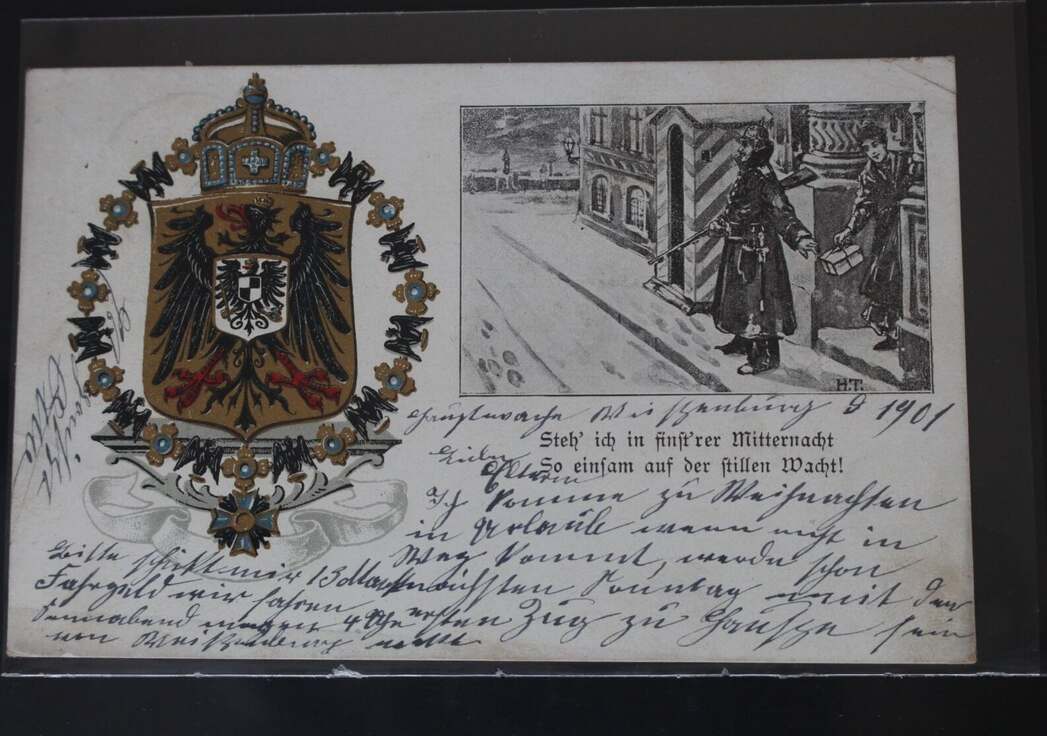 H.T.
Hauptwache Weißenburg 1901
Steh' ich in finst'rer Mitternacht
So einsam auf der stillen Wacht!
Liebe
Eltern
Ich komme zu Weihnachten
in Urlaub wenn nicht in
Weg kommt, werde schon
nächsten Sonntag mit dem
ersten Zug zu Hause sein
Bitte schickt mir 13 Mark
Fahrgeld wir fahren
Sonnabend 4 Uhr
von Weißenburg